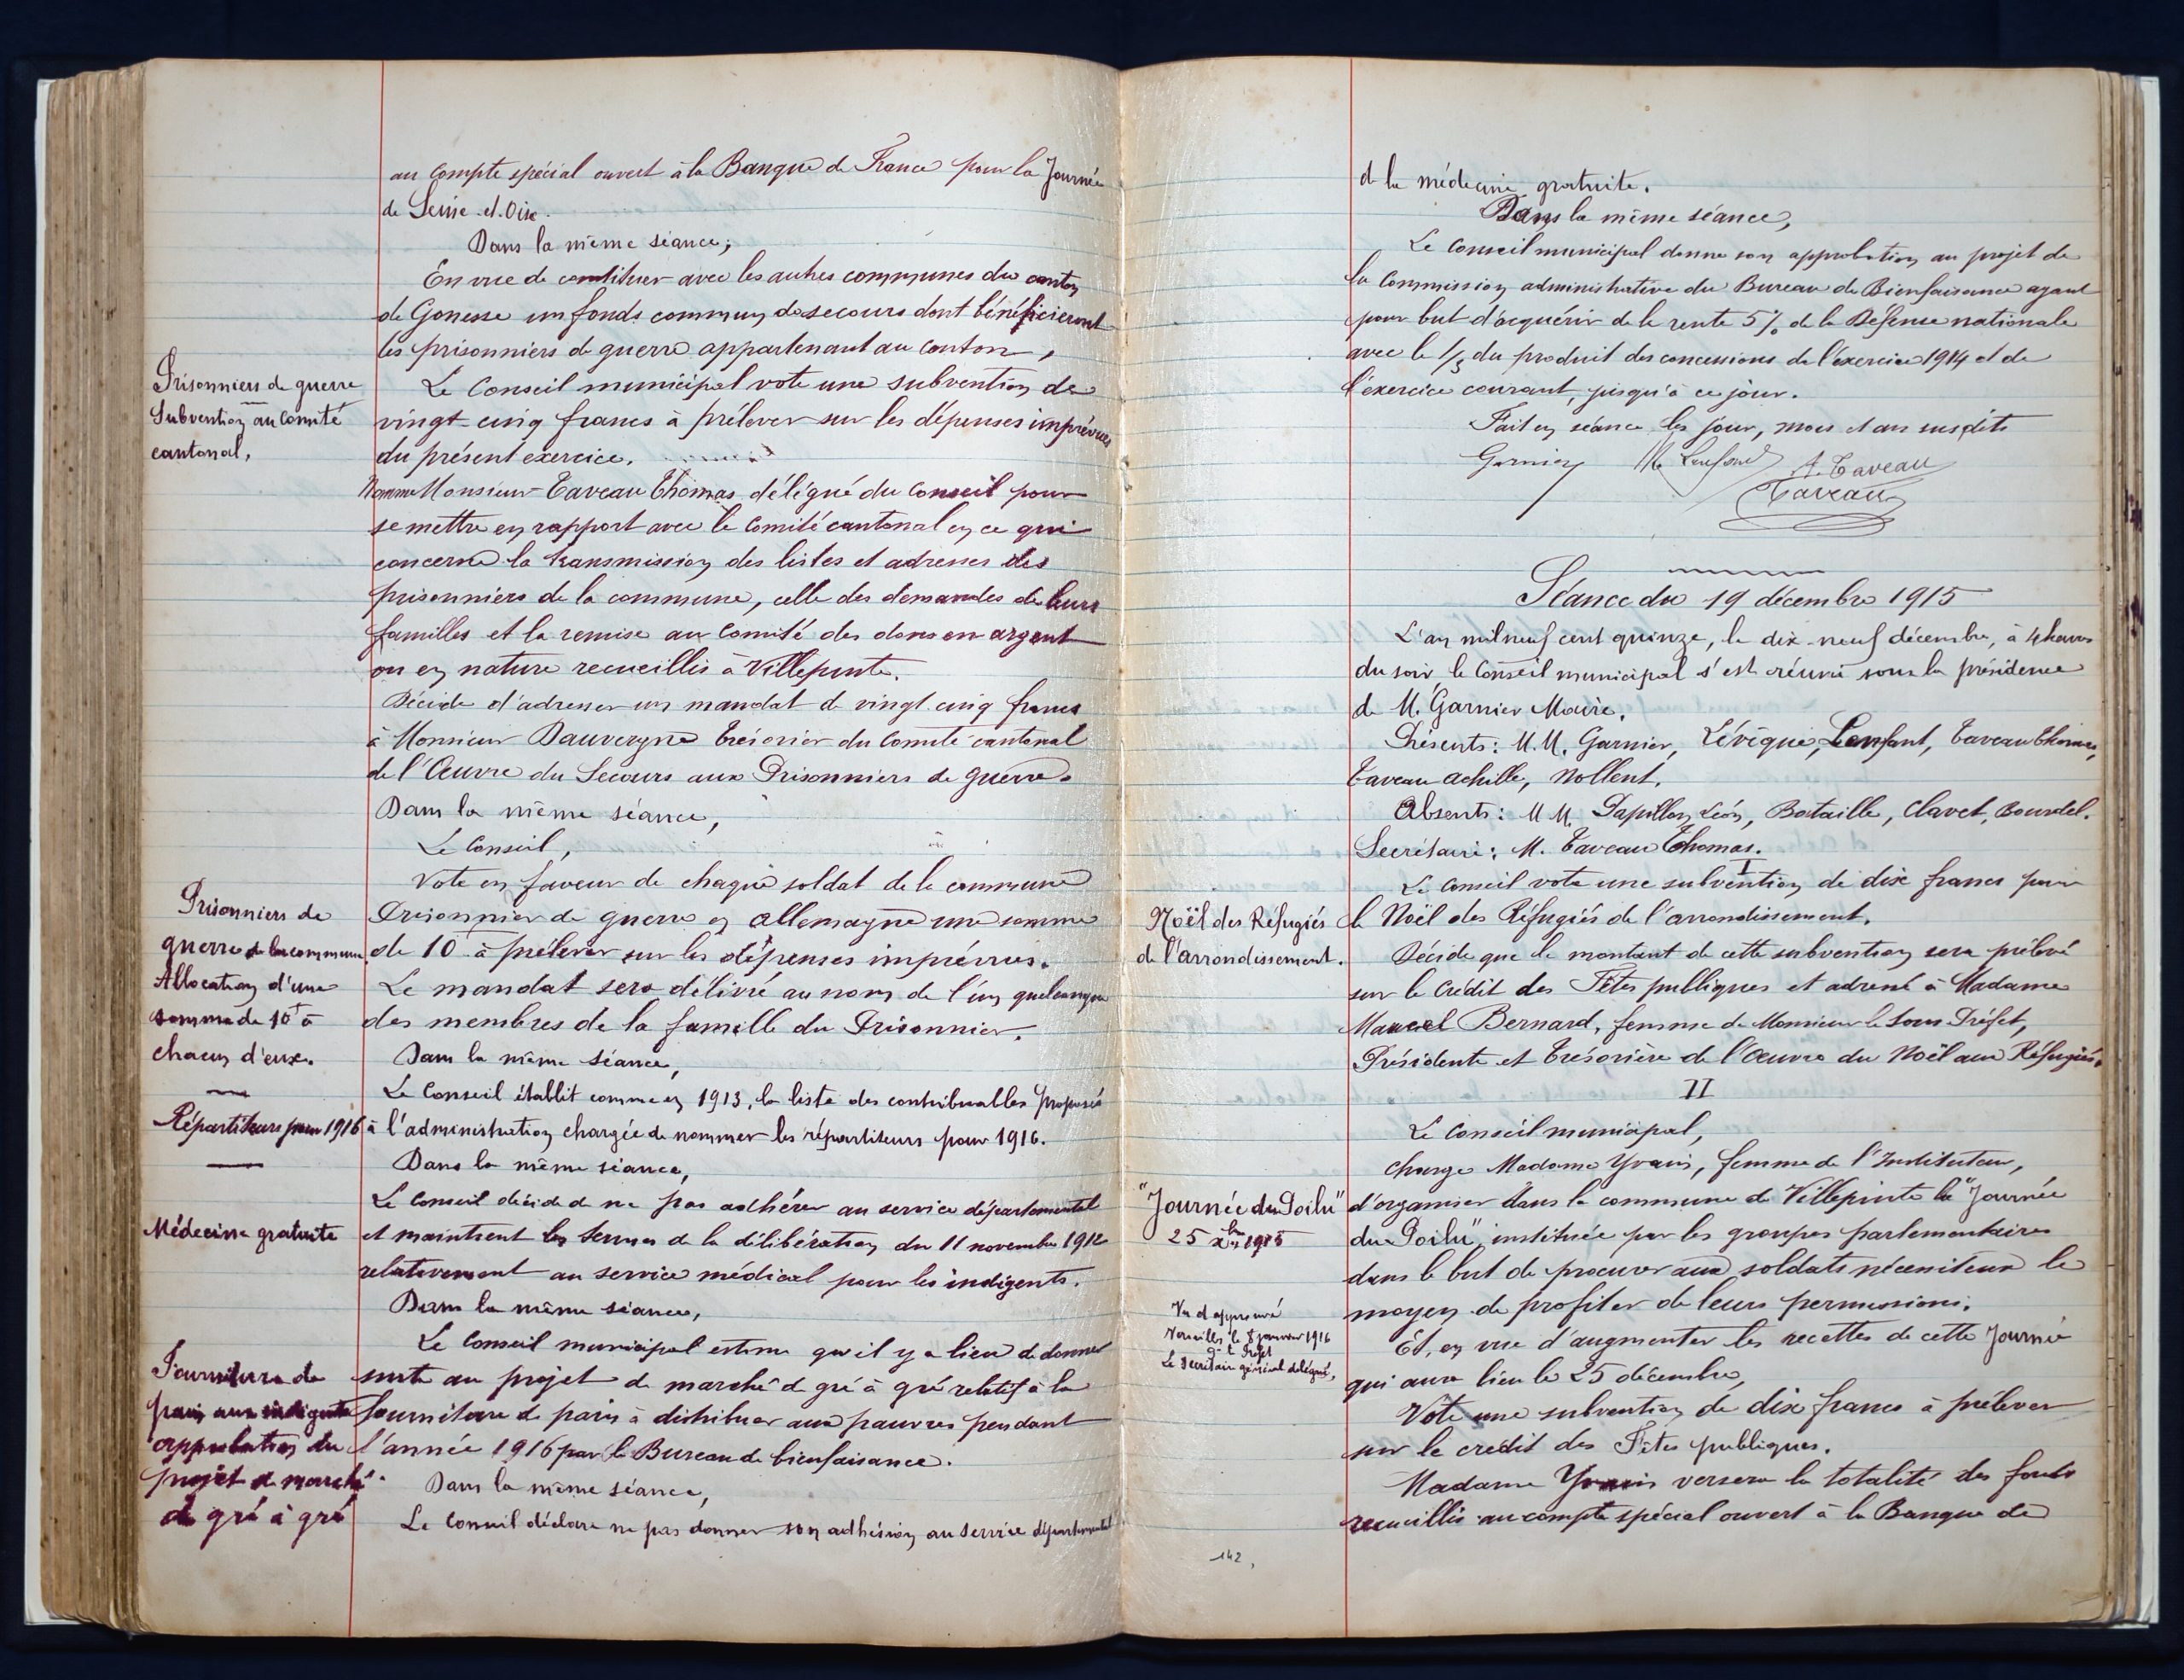 au Compte spécial ouvert à la Banque de France pour la Journée
de Seine-et-Oise.
Dans la même séance;
En vue de constituer avec les autres communes du canton
de Gonesse un fonds commun de secours dont bénéficieront
les prisonniers de guerre appartenant au canton,
Prisonniers de guerre
Subvention au Comité
cantonal,
Le Conseil municipal vote une subvention de
vingt cinq francs à prélever sur les dépenses imprévues
du présent exercice.
Nomme Monsieur Taveau Thomas délégué du Conseil pour
se mettre en rapport avec le Comité cantonal en ce qui
concerne la transmission des listes et adresses des
prisonniers de la commune, celle des demandes de leurs
familles et la remise au Comité des dons en argent
ou en nature recueillis à Villepinte.
Décide d'adresser un mandat de vingt cinq francs
à Monsieur Dauvergne trésorier du Comité cantonal
de l'Œuvre du Secours aux Prisonniers de guerre.
Dans la même séance,
Le Conseil,
Prisonniers de
guerre de la commune
Allocation d'une
somme de 10f à
chacun d'eux.
Vote en faveur de chaque soldat de la commune
Prisonnier de guerre en Allemagne une somme
de 10f à prélever sur les dépenses imprévues.
Le mandat sera délivré au nom de l'un quelconque
des membres de la famille du Prisonnier.
Dans la même séance,
Répartiteurs pour 1916
Le Conseil établit comme en 1913, la liste des contribuables proposés
à l'administration chargée de nommer les répartiteurs pour 1916.
Dans la même séance,
Médecine gratuite
Le Conseil décide de ne pas adhérer au service départemental
et maintient les termes de la délibération du 11 novembre 1912
relativement au service médical pour les indigents.
Dans la même séance,
Fourniture de
pain aux indigents
approbation du
projet de marché
de gré à gré
Le Conseil municipal estime qu'il y a lieu de donner
suite au projet de marché de gré à gré relatif à la
fourniture de pain à distribuer aux pauvres pendant
l'année 1916 par le Bureau de bienfaisance.
Dans la même séance,
Le Conseil déclare ne pas donner son adhésion au service départemental
de la médecine gratuite.
Dans la même séance,
Le Conseil municipal donne son approbation au projet de
la Commission administrative du Bureau de Bienfaisance ayant
pour but d'acquérir de la rente 5% de la Défense nationale
avec le 1/3 du produit des concessions de l'exercice 1914 et de
l'exercice courant, jusqu'à ce jour.
Fait en séance les jour, mois et an susdits
Garnier Lenfant A. Taveau
Taveau
Séance du 19 décembre 1915
L'an mil neuf cent quinze, le dix-neuf décembre, à 4 heures
du soir, le Conseil municipal s'est réuni sous la présidence
de M. Garnier Maire.
Présents: M.M. Garnier, Lévêque, Lenfant, Taveau Thomas,
Taveau Achille, Nollent.
Absents: M.M. Papillon Léon, Bataille, Clavet, Bourdel.
Secrétaire: M. Taveau Thomas.
I
Noël des Réfugiés
de l'arrondissement.
Le Conseil vote une subvention de dix francs pour
le Noël des Réfugiés de l'arrondissement.
Décide que le montant de cette subvention sera prélevé
sur le Crédit des Fêtes publiques et adressé à Madame
Marcel Bernard, femme de Monsieur le Sous-Préfet,
Présidente et trésorière de l'Œuvre du Noël aux Réfugiés.
II
Le Conseil municipal,
"Journée du Poilu"
25 Xbre 1915
charge Madame Yvain, femme de l'Instituteur,
d'organiser dans la commune de Villepinte la "Journée
du Poilu", instituée par les groupes parlementaires
dans le but de procurer aux soldats nécessiteux le
moyen de profiter de leurs permissions.
Vu et approuvé
Versailles le 8 janvier 1916
Le Secrétaire général délégué,
Et, en vue d'augmenter les recettes de cette Journée
qui aura lieu le 25 décembre,
Vote une subvention de dix francs à prélever
sur le crédit des Fêtes publiques.
Madame Yvain versera la totalité des fonds
recueillis au compte spécial ouvert à la Banque de
142,